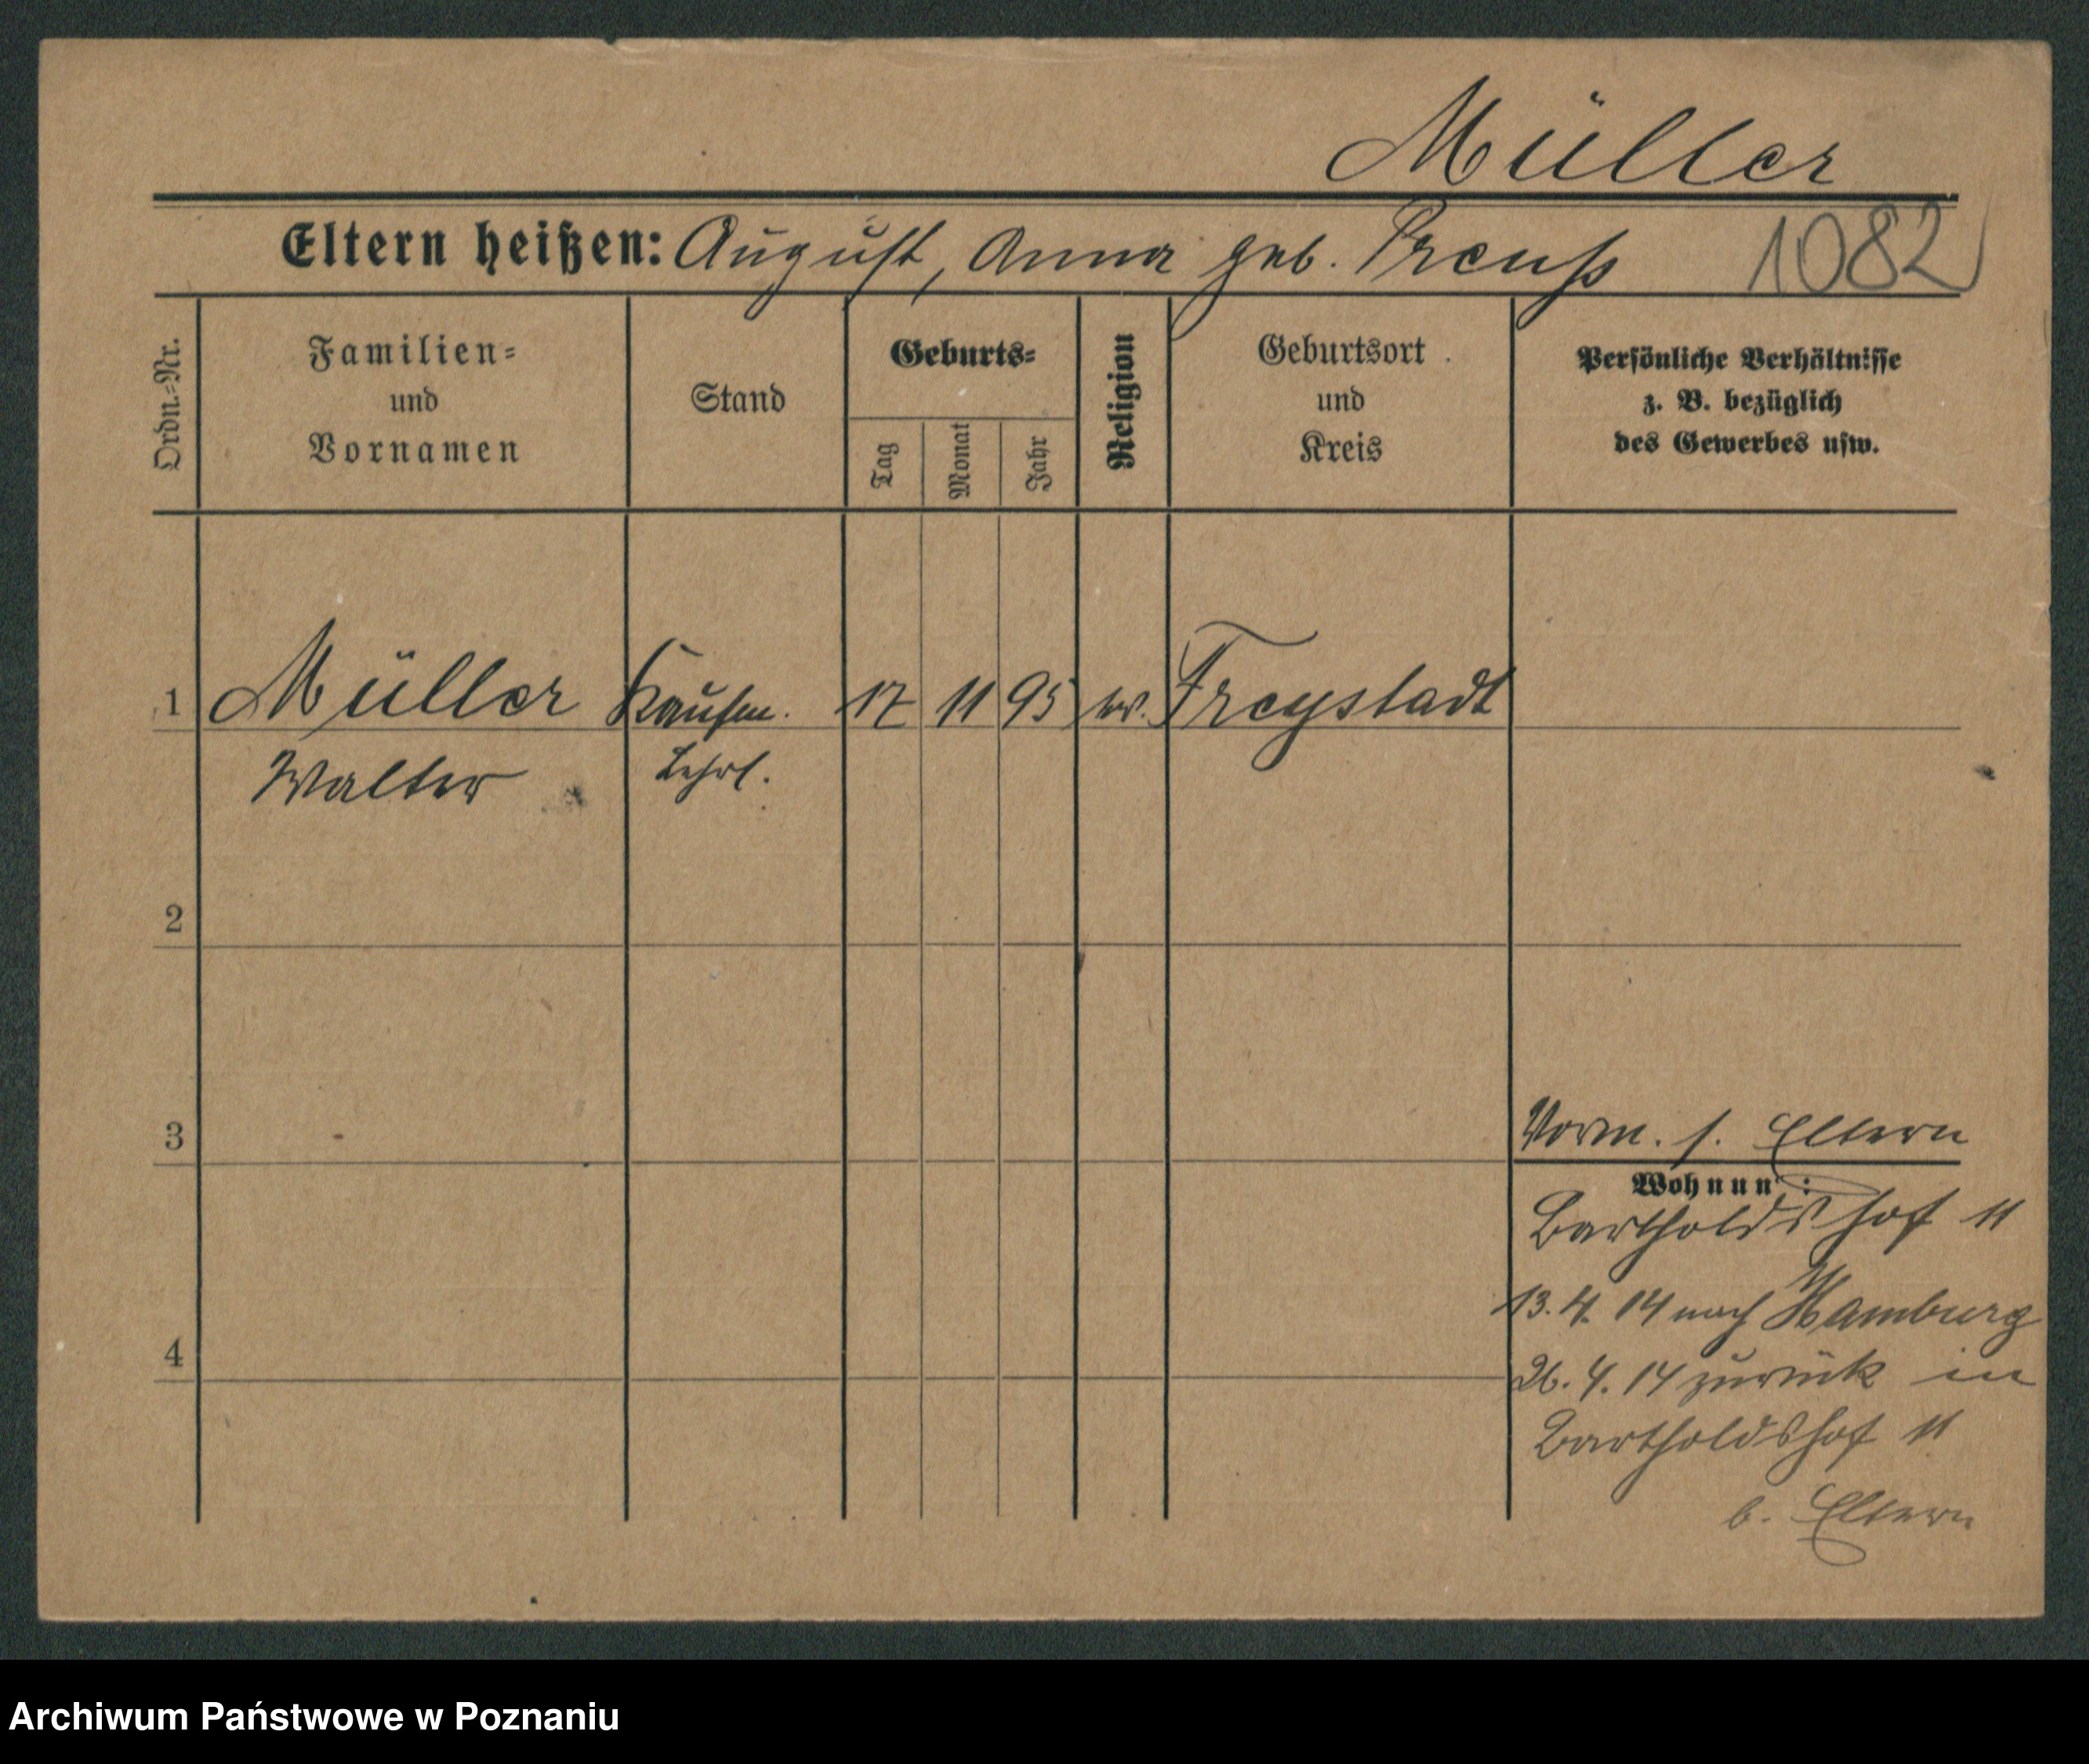 Müller
Eltern heißen: August, Anna geb. Preuß 1082
Ordn.-Nr.
Familien-
und
Vornamen
Stand
Geburts-
Tag
Monat
Jahr
Religion
Geburtsort
und
Kreis
Persönliche Verhältnisse
z. B. bezüglich
des Gewerbes usw.
1 Müller Kaufm. 17 11 95 ev. Freystadt
Walter Lehrl.
2
3
Vorm. s. Eltern
Wohnun :
Bartholdshof 11
13. 4. 14 nach Hamburg
4
26. 4. 14 zurück in
Bartholdshof 11
b. Eltern
Archiwum Państwowe w Poznaniu